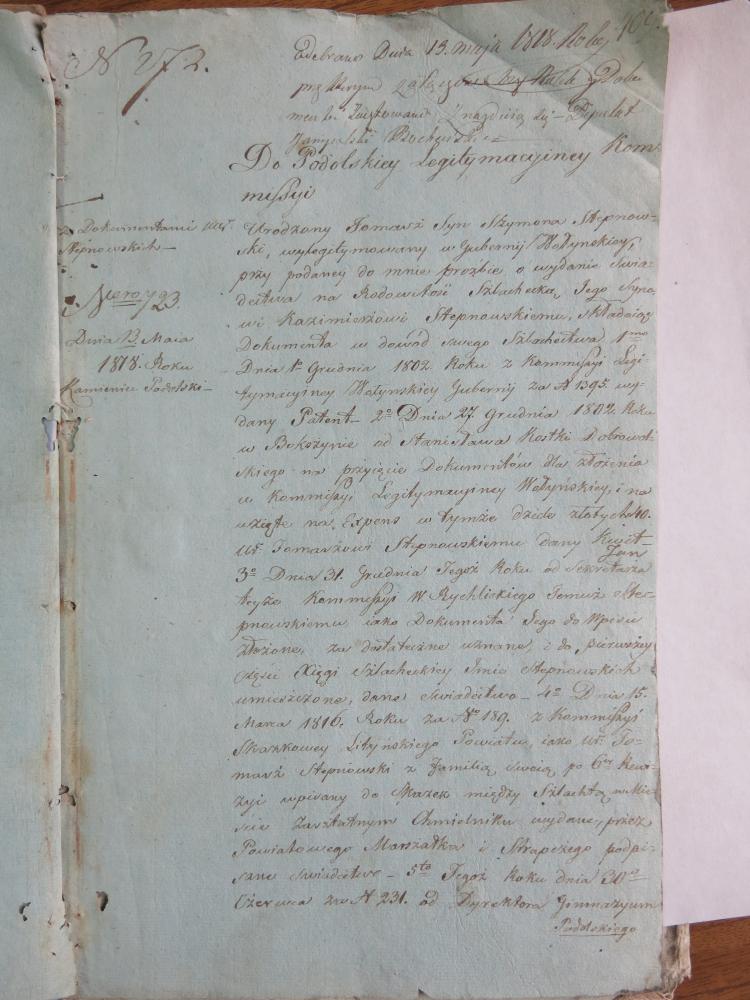 N 272.
Odebrano Dnia 13. maja 1818. Roku
przy którym
menta znajduią się Deputat
Do Podolskiey Legitymacyiney Kom-
missyi
z Dokumentami Ur.
Stępnowskich
Nero 723.
Dnia 13. Maia
1818. Roku
Kamieniec Podolski
Urodzony Tomasz Syn Szymona Stępnow-
ski, wylegitymowany w Gubernij Wołynskiey,
przy podaney do mnie prożbie, o wydanie świa-
dectwa na Rodowitość Szlachecką, Jego Syno-
wi Kazimierzowi Stepnowskiemu, składaiąc
Dokumenta w dowod swego Szlachectwa 1mo
Dnia 1o Grudnia 1802. Roku z Kommissyi Legi-
tymacyiney Wołynskiey Gubernij za N 1395 wy-
dany Patent – 2o Dnia 27. Grudnia 1802. Roku
w Bokszynie od Stanisława Kostki Dobrowol-
skiego na przyięcie Dokumentow dla złożenia
w Kommissyi Legitymacyiney Wołyńskiey, i na
wzięte na Expens w tymże dziele złotych 40.
Ur. Tomaszowi Stepnowskiemu dany Kwit –
3o Dnia 31. Grudnia Tegoż Roku od Sekretarza
Jan
teyże Kommissyi W. Rychlickiego Tomusz Ste-
pnowskiemu iako Dokumenta Jego do Wpisu
złożone, za dostateczne uznane, i do pierwszey
części Xięgi Szlacheckiey Imie Stepnowskich
umieszczone, dane świadectwo – 4o Dnia 15.
Marca 1816. Roku za No 189. z Kommissyi
Skazkowey Lityńskiego Powiatu, iako Ur. To-
masz Stepnowski z Familią swoią po 6ey Rewi-
zyi wpisany do Skazek między Szlachtą w Mie-
ście Zasztatnym Chmielniku wydane, przez
Powiatowego Marszałka i Strapczego podpi-
sane świadectwo – 5to Tegoż Roku dnia 30o
Czerwca za N 231. od Dyrektora Gimnazyum
Podolskiego